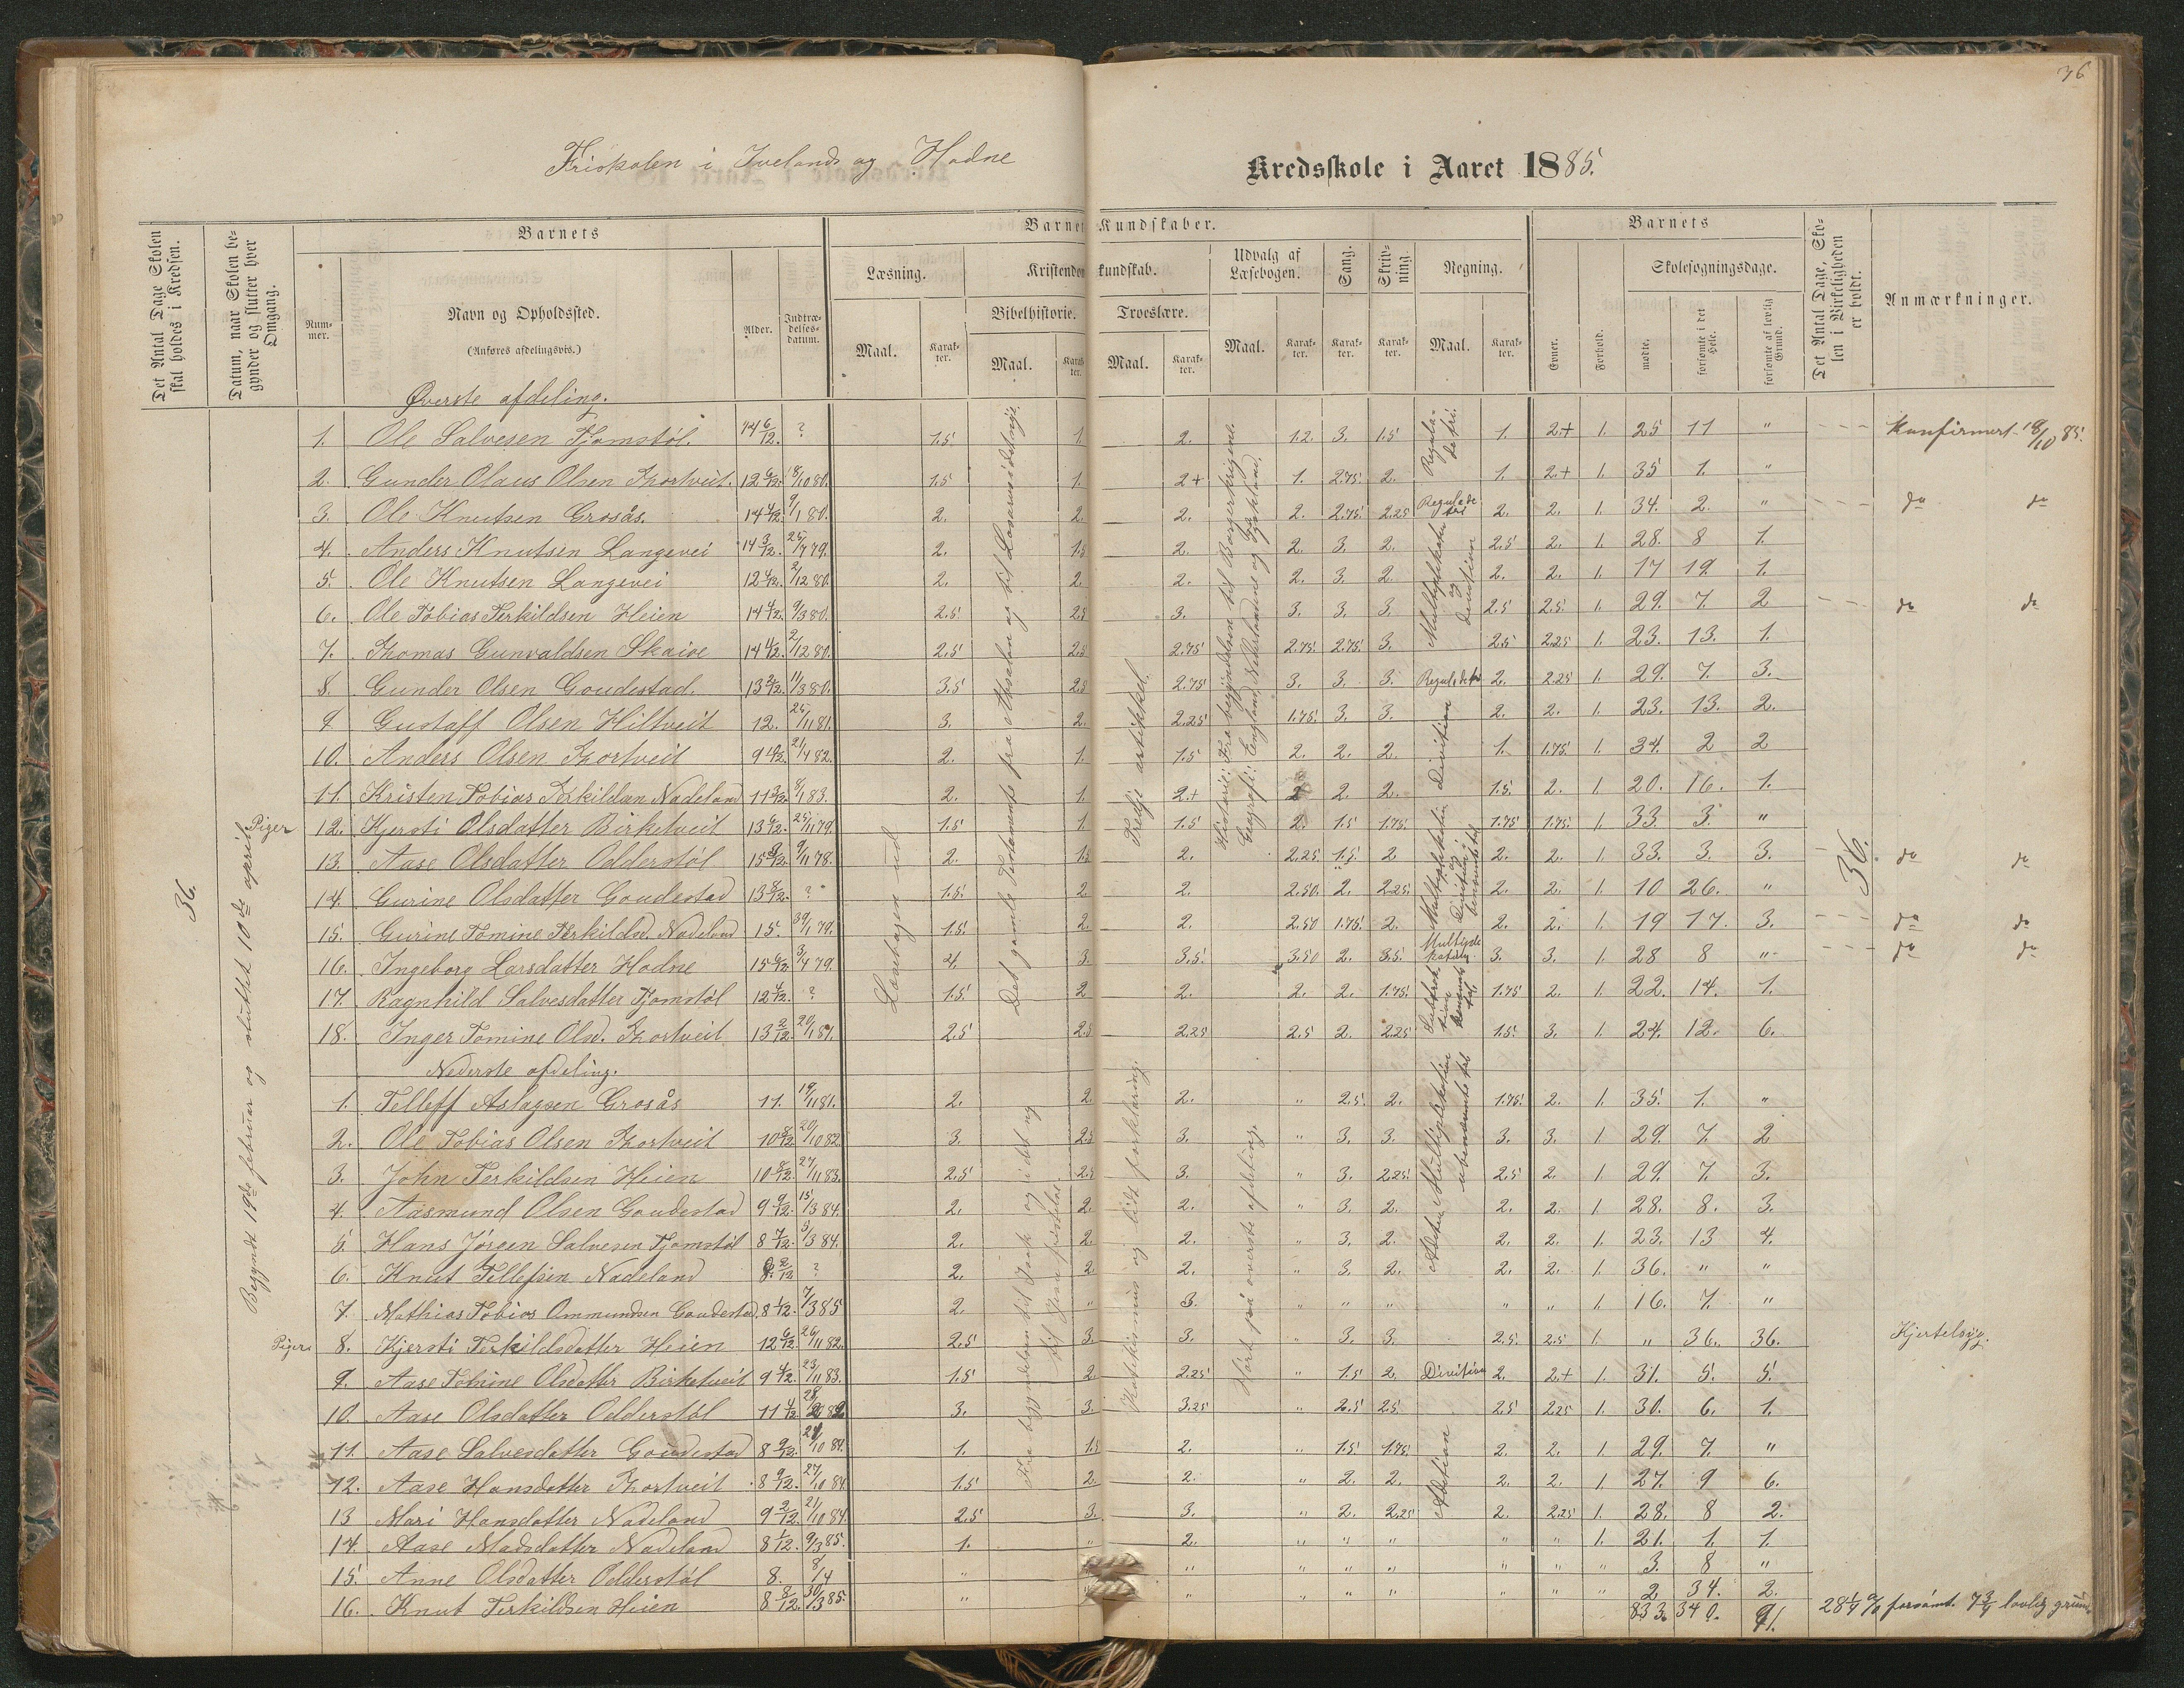 36
Friskolen i Ivelands og Hodne Kredsskole i Aaret 1885.
Det Antal Dage Skolen skal holdes i Kredsen.
Datum, naar Skolen begynder og slutter hver Omgang.
Barnets
Nummer.
Navn og Opholdssted.
(Anføres afdelingsvis.)
Alder.
Indtrædelsesdatum.
Barnets Kundskaber.
Læsning.
Maal.
Karakter.
Kristendomskundskab.
Bibelhistorie.
Maal.
Karakter.
Troeslære.
Maal.
Karakter.
Udvalg af Læsebogen.
Maal.
Karakter.
Sang.
Karakter.
Skrivning.
Karakter.
Regning.
Maal.
Karakter.
Barnets
Evner.
Forhold.
Skolesøgningsdage.
mødte.
forsømte i det Hele.
forsømte af lovlig Grund.
Det Antal Dage, Skolen i Virkeligheden er holdt.
Anmærkninger.
36.
Begyndt 19de februar og sluttet 10de april
Øverste afdeling.
1. Ole Salvesen Tjomstøl. 14 6/12. ? 1.5 1. 2. 1.2. 3. 1.5 1. 2+ 1. 25 11 " Konfirmert 18/10 85.
2. Gunder Olaus Olsen Thortveit. 12 6/12. 18/10 80. 1.5 1. 2+ 1. 2.75. 2. 1. 2+ 1. 35 1. "
3. Ole Knutsen Grosås. 14 4/12. 9/1 80. 2. 2. 2. 2. 2.75. 2.25 2. 2. 1. 34. 2. " do do
4. Anders Knutsen Langevei 14 3/12. 25/7 79. 2. 1.5 2. 2. 3. 2. 2.5 2. 1. 28. 8 1.
5. Ole Knutsen Langevei 12 4/12. 2/12 80. 2. 2. 2. 2. 3. 2. 2. 2. 1. 17 19. 1.
6. Ole Tobias Terkildsen Heien 14 4/12. 9/3 80. 2.5 2.5 3. 3. 3. 3. 2.5 2.5 1. 29. 7. 2 do do
7. Thomas Gunvaldsen Skaive 14 4/12. 2/12 80. 2.5 2.5 2.75 2.75. 2.75. 3. 2.5 2.25 1. 23. 13. 1.
8. Gunder Olsen Goudestad. 13 2/12. 11/3 80. 3.5 2.5 2.75 3. 3. 3. 2. 2.25 1. 29. 7. 3.
9. Gustaff Olsen Hiltveit 12. 25/11 81. 3. 2. 2.25 1.75. 3. 3. 2. 2. 1. 23. 13. 2.
10. Anders Olsen Thortveit 9 10/12. 21/4 82. 2. 1. 1.5 2. 2. 2. 1. 1.75. 1. 34. 2 2
11. Kristen Tobias Terkildsen Nadeland 11 3/12. 8/1 83. 2. 1. 2+ 2 2. 2. 1.5. 2. 1. 20. 16. 1.
Piger 12. Kjersti Olsdatter Birketveit 13 6/12. 25/11 79. 1.5 1. 1.5 2. 1.5 1.75. 1.75 1.75. 1. 33. 3. "
13. Aase Olsdatter Odderstøl 15 8/12. 9/11 78. 2. 1.5 2. 2.25. 1.5. 2 2. 2. 1. 33. 3. 3. do do
14. Gurine Olsdatter Goudestad 13 8/12. ? 1.5. 2 2. 2.50. 2. 2.25. 2. 2. 1. 10 26. "
15. Gurine Tomine Terkildsd. Nadeland 15. 30/1 79. 1.5. 2 2. 2.50 1.75. 2. 2. 2. 1. 19 17. 3. do do
16. Ingeborg Larsdatter Hodne 15 6/12. 3/4 79. 4. 3. 3.5. 3.50 2. 3.5. 3. 3. 1. 28 8 " do do
17. Ragnhild Salvesdatter Tjomstøl 12 4/12. ? 1.5. 2 2. 2. 2. 1.75. 1.75 2. 1. 22. 14. 1.
18. Inger Tomine Olsd. Thortveit 13 2/12. 20/1 81. 2.5 2.5 2.25 2.5 2. 2.25 1.5. 3. 1. 24. 12. 6.
Læsebogen ud
Det gamle Testamente fra Absalon og til Lasarus's dødsrige.
Tredje artikkel.
Historie: Fra begyndelsen til Borgerkrigene.
Geografi: England, Nederlandene og Tyskland.
Regula-detri.
Regula de tri
Multiplikation og division
Regula detri
Division
Multiplikation og Division i benævnte tal
Multiplikation
Subtraktion benævnte tal
36.
Nederste afdeling.
1. Tellef Aslagsen Grosås 11. 19/11 81. 2. 2. 2. " 2.5. 2. 1.75. 2. 1. 35. 1. "
2. Ole Tobias Olsen Thortveit 10 8/12 20/10 82. 3. 2.5 3. " 3. 3. 3. 3. 1 29. 7. 2
3. John Terkildsen Heien 10 8/12. 27/11 83. 2.5 2.5 3. " 3. 2.25. 2.5 2. 1. 29. 7. 3.
4. Aasmund Olsen Goudestad 9 9/12. 15/3 84. 2. 2. 2. " 3. 2. 2. 2. 1. 28. 8. 3.
5. Hans Jörgen Salvesen Tjomstøl 8 7/12. 5/3 84. 2. 2. 2. " 3. 2. 2. 2. 1. 23. 13 4.
6. Knut Tellefsen Nadeland 8 2/12 ? 2. 2 2. " 3. 2. 2. 2. 1. 36. " "
7. Mathias Tobias Ommundsen Goudestad 8 1/12. 7/3 85 2. " 3. " " " " " 1. 16. 7. "
Piger 8. Kjersti Terkildsdatter Heien 12 6/12. 26/11 82. 2.5 3. 3. " 3. 3. 2.5. 2.5 1. " 36. 36. Kjertelsyg.
9. Aase Tomine Olsdatter Birketveit 9 4/12. 23/11 83. 1.5 2 2.25 " 1.5 2. Division 2. 2+ 1. 31. 5. 5.
10. Aase Olsdatter Odderstøl 11 4/12. 3. 3. 3.25 " 2.5 2.5 2.5 2.25 1. 30. 6. 1.
11. Aase Salvesdatter Goudestad 8 9/12. 21/10 84. 1. 1.5 2. " 1.5. 1.75. 2. 2. 1. 29. 7. "
12. Aase Hansdatter Thortveit 8 9/12. 27/10 84. 1.5 2. 2. " 2. 2. 2. 2. 1. 27. 9 6.
13 Mari Hansdatter Nadeland 9 2/12. 21/10 84. 2.5 3. 3. " 2. 2.25 2. 2.25 1. 28. 8 2.
14. Aase Madsdatter Nadeland 8 1/12. 9/3 85. 1. " 2. " " " " " 1. 21. 1. 1.
15. Anne Olsdatter Odderstøl 8. 8/4 " " " " " " " " " 3. 8 "
16. Knut Terkildsen Heien 8 8/12. 30/3 85. " " " " " " " " 2. 34. 2.
833. 340. 91. 28 1/4 % forsömt. 7 3/4 lovlig grund
Fra begyndelsen til Isak og i det ny til Jesu
Katekismus og lidt forklaring.
Hørt på øverste afdeling.
Multiplikation ubenævnte tal
Addition